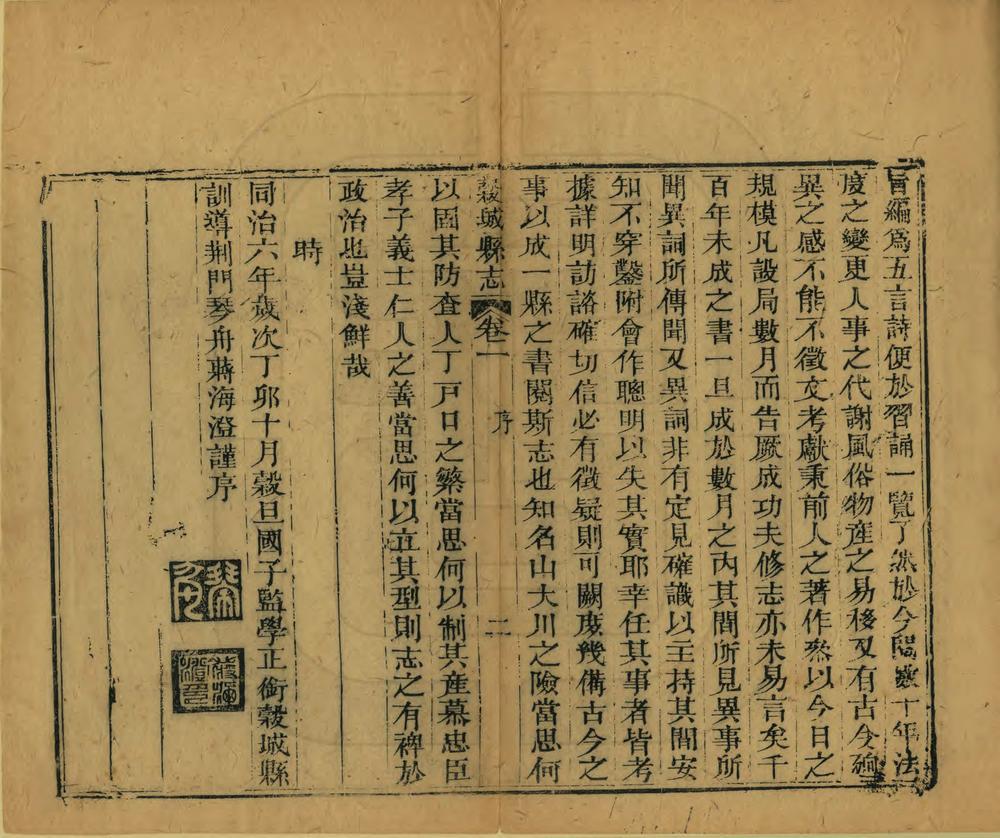 旨編爲五言詩便於習誦一覽了然於今閱數十年法
度之變更人事之代謝風俗物產之易移又有古今殊
異之感不能不徵文考獻秉前人之著作叅以今日之
規模凡設局數月而告厥成功夫修志亦未易言矣千
百年未成之書一旦成於數月之內其間所見異事所
聞異詞所傳聞又異詞非有定見確識以主持其間安
知不穿鑿附會作聰明以失其實耶幸任其事者皆考
據詳明訪諮確切信必有徵疑則可闕庶幾備古今之
事以成一縣之書閱斯志也知名山大川之險當思何
穀城縣志 卷一 序 二
以固其防查人丁戸口之繁當思何以制其產慕忠臣
孝子義士仁人之善當思何以立其型則志之有裨於
政治也豈淺鮮哉
時
同治六年歲次丁卯十月穀旦國子監學正銜穀城縣
訓導荆門琴舟蔣海澄謹序